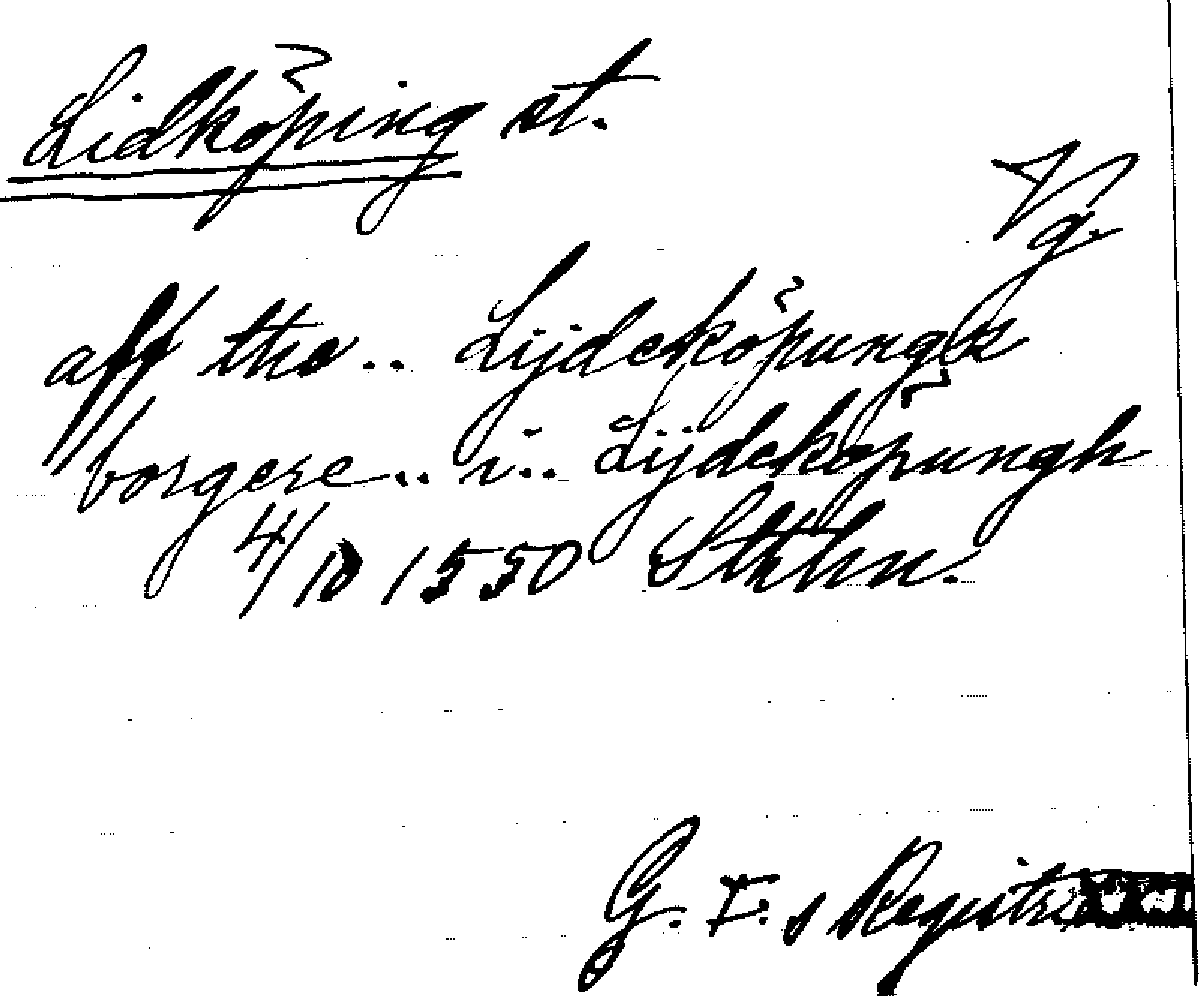 Lidköping st.
Vg.
aff the.. Lijdeköpungx
borgere.. i.. Lijdeköpungh
4/10 1550 Sthlm.
G. I. s Registr.